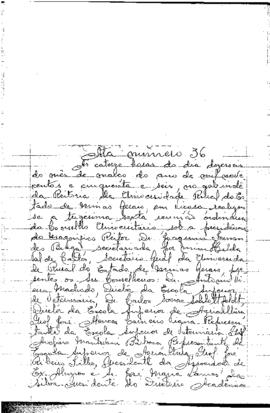 Ata número 36
As catorze horas do dia dezesseis
do mês de março do ano de mil nove
centos e cinquenta e seis, no gabinete
da Reitoria da Universidade Rural do Es
tado de Minas Gerais, em Viçosa, realizou
se a trigésima sexta reunião ordinária
do Conselho Universitário sob a presidência
do Magnífico Reitor Dr. Joaquim Fernan
des Braga, secretariada por mim
de Castro, Secretário Geral da Universida
de Rural do Estado de Minas Gerais,
sentes os Conselheiros: Dr. Antonio
Machado, Diretor da Escola Superior
de Veterinária, Dr. Carlos Socias Schlottfeldt,
Diretor da Escola Superior de Agricultura
Prof. José Represen
tante da Escola Superior de Veterinária, Prof.
Representante da
Escola Superior de Prof. José
Filho, Presidente da Associação de
Ex-Alunos e Sr. José Maria
Silva, Presidente do Diretório Acadêmico